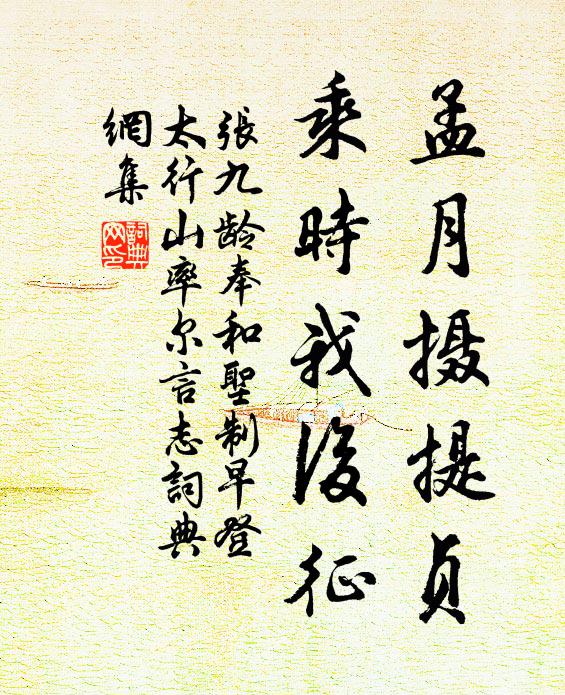 孟月摄提贞
乘時我後征
張九龄奉和聖制早登
太行山率尔言志詞典
網集
詞典
网印